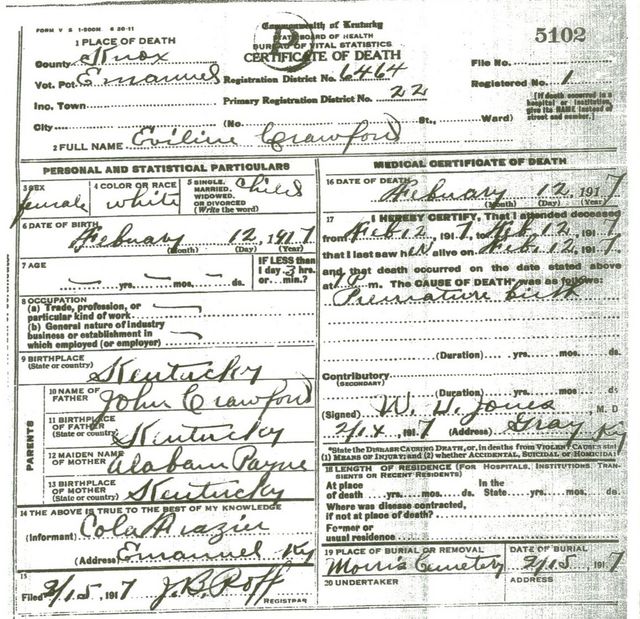 FORM V S 1-500M 8 20-11
Commonwealth of Kentucky
STATE BOARD OF HEALTH
BUREAU OF VITAL STATISTICS
CERTIFICATE OF DEATH
5102
1 PLACE OF DEATH
County Knox
Vot. Pct. Emanuel
Registration District No. 6464
File No.
Inc. Town
Primary Registration District No. 22
Registered No. 1
City (No. St., Ward)
[If death occurred in a hospital or institution, give its NAME instead of street and number.]
2 FULL NAME Eviline Crawford
PERSONAL AND STATISTICAL PARTICULARS
3 SEX female
4 COLOR OR RACE white
5 SINGLE, MARRIED, WIDOWED, OR DIVORCED (Write the word) Child
6 DATE OF BIRTH
February 12, 1917
(Month) (Day) (Year)
7 AGE
yrs. mos. ds.
IF LESS than 1 day 3 hrs. or min.?
8 OCCUPATION
(a) Trade, profession, or particular kind of work
(b) General nature of industry business or establishment in which employed (or employer)
9 BIRTHPLACE
(State or country) Kentucky
PARENTS
10 NAME OF FATHER John Crawford
11 BIRTHPLACE OF FATHER (State or country) Kentucky
12 MAIDEN NAME OF MOTHER Alabam Payne
13 BIRTHPLACE OF MOTHER (State or country) Kentucky
14 THE ABOVE IS TRUE TO THE BEST OF MY KNOWLEDGE
(Informant)
(Address) Emanuel Ky
15
Filed 2/15, 1917 J. B. Roff
REGISTRAR
MEDICAL CERTIFICATE OF DEATH
16 DATE OF DEATH
February 12, 1917
(Month) (Day) (Year)
17 I HEREBY CERTIFY, That I attended deceased
from Feb 12, 1917, Feb 12, 1917
that I last saw her alive on Feb. 12, 1917
and that death occurred on the date stated above
at m. The CAUSE OF DEATH* was as follows:
Premature birth
(Duration) yrs. mos. ds.
Contributory
(SECONDARY)
(Duration) yrs. mos. ds
(Signed) W. H. Jones M. D
2/14, 1917 (Address) Gray Ky
*State the DISEASE CAUSING DEATH, or, in deaths from VIOLENT CAUSES state (1) MEANS OF INJURY; and (2) whether ACCIDENTAL, SUICIDAL or HOMICIDAL
18 LENGTH OF RESIDENCE (FOR HOSPITALS, INSTITUTIONS, TRANSIENTS OR RECENT RESIDENTS)
At place of death yrs. mos. ds. In the State yrs. mos. ds.
Where was disease contracted, if not at place of death?
Former or usual residence
19 PLACE OF BURIAL OR REMOVAL
Morris Cemetery
DATE OF BURIAL
2/15, 1917
20 UNDERTAKER
ADDRESS